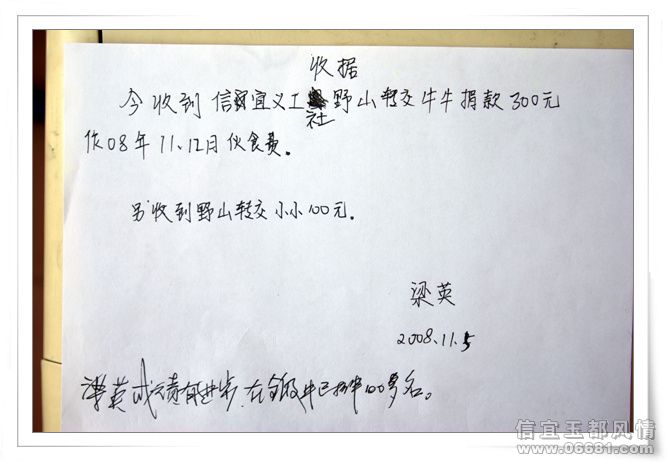 收据
今收到信宜义工社野山转交牛牛捐款300元
作08年11.12日伙食费。
另收到野山转交小小100元.
梁英
2008.11.5
梁英成绩有进步.在全级中已排100多名。
信宜玉都风情
www.06681.com